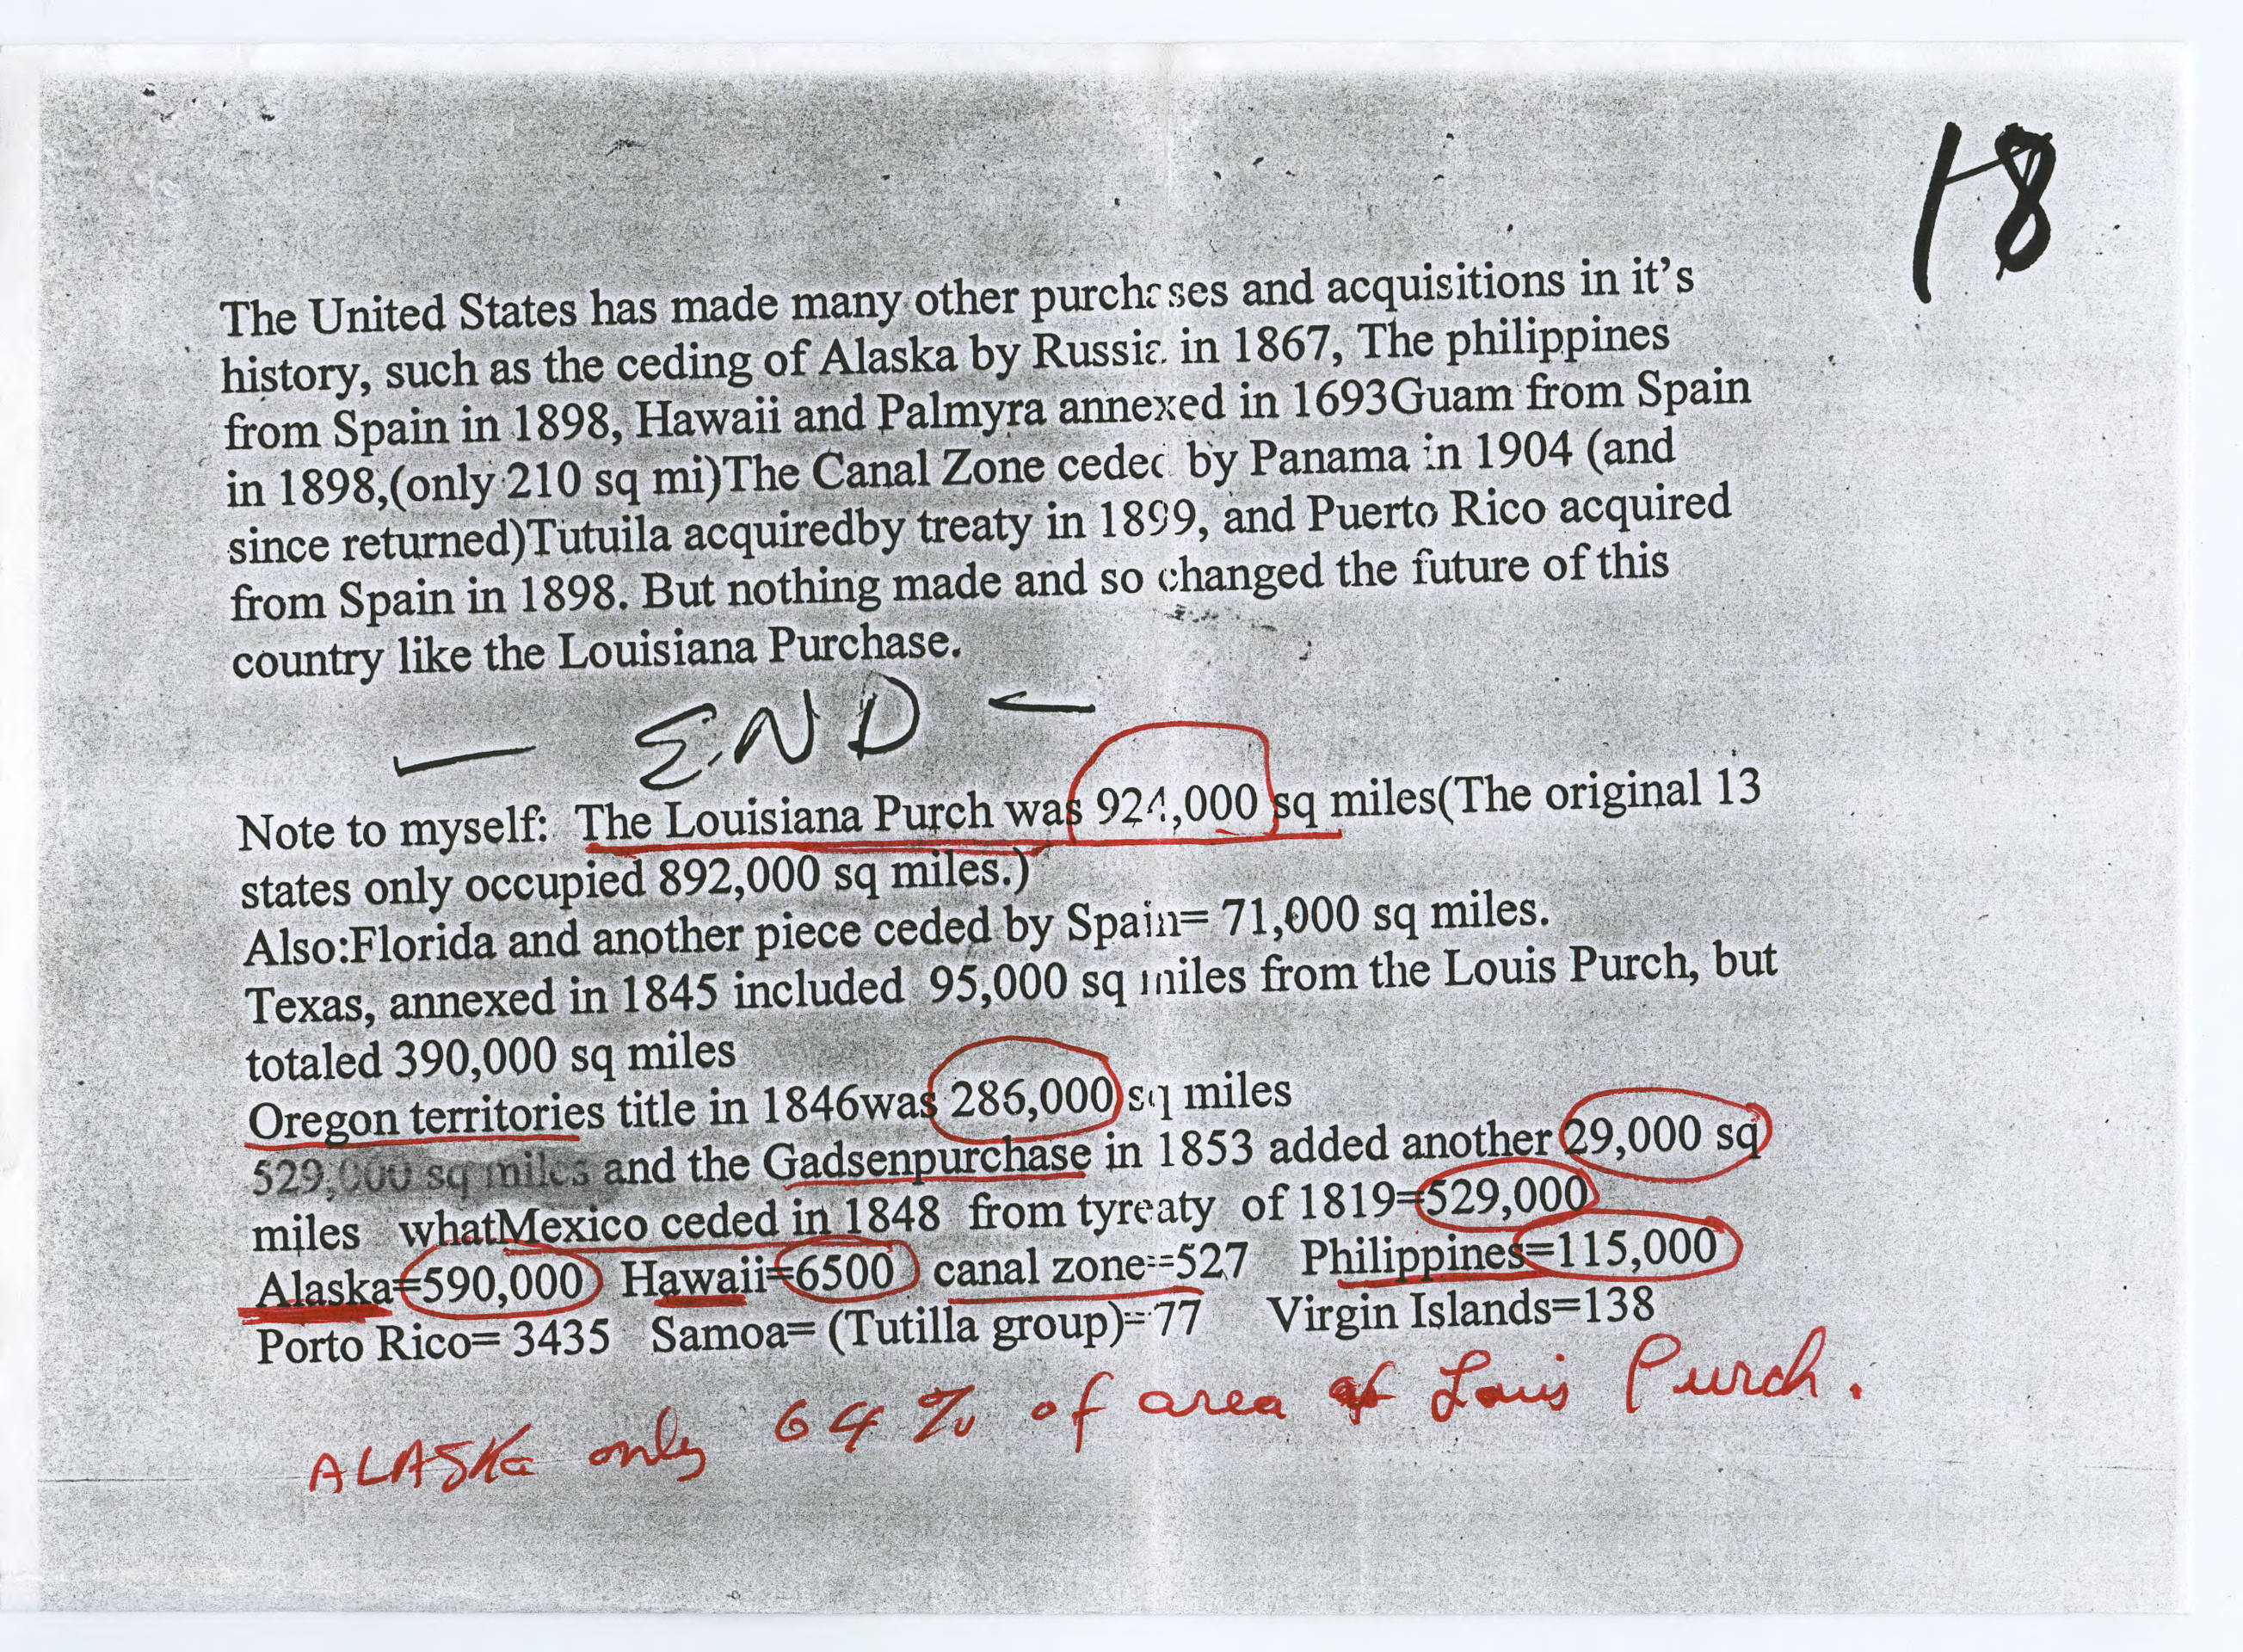 18
The United States has made many other purchases and acquisitions in it's
history, such as the ceding of Alaska by Russia in 1867, The philippines
from Spain in 1898, Hawaii and Palmyra annexed in 1693Guam from Spain
in 1898,(only 210 sq mi)The Canal Zone ceded by Panama in 1904 (and
since returned)Tutuila acquiredby treaty in 1899, and Puerto Rico acquired
from Spain in 1898. But nothing made and so changed the future of this
country like the Louisiana Purchase.
— END —
Note to myself: The Louisiana Purch was 924,000 sq miles(The original 13
states only occupied 892,000 sq miles.)
Also:Florida and another piece ceded by Spain= 71,000 sq miles.
Texas, annexed in 1845 included 95,000 sq miles from the Louis Purch, but
totaled 390,000 sq miles
Oregon territories title in 1846was 286,000 sq miles
529,000 sq miles and the Gadsenpurchase in 1853 added another 29,000 sq
miles whatMexico ceded in 1848 from tyreaty of 1819=529,000
Alaska=590,000 Hawaii=6500 canal zone==527 Philippines=115,000
Porto Rico= 3435 Samoa= (Tutilla group)=77 Virgin Islands=138
ALASKa only 64% of area of Louis Purch.